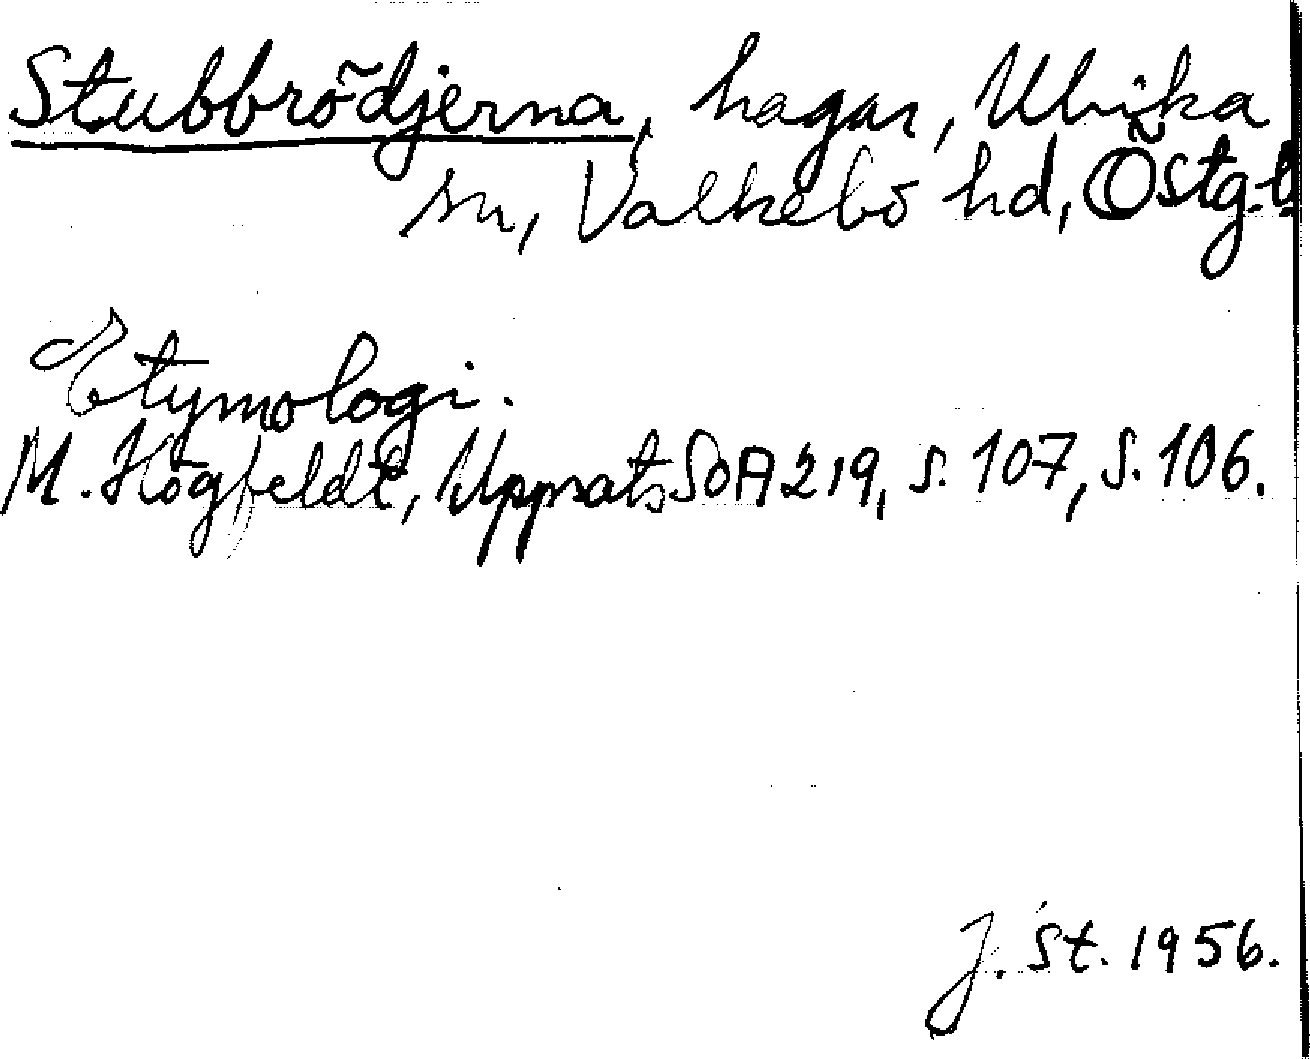 Stubbrödjerna, hagar, Ulrika
sn, Valkebo hd, Östg.
Etymologi.
M. Högfeldt, Uppsats SOA 219, s. 107, s. 106.
J. St. 1956.